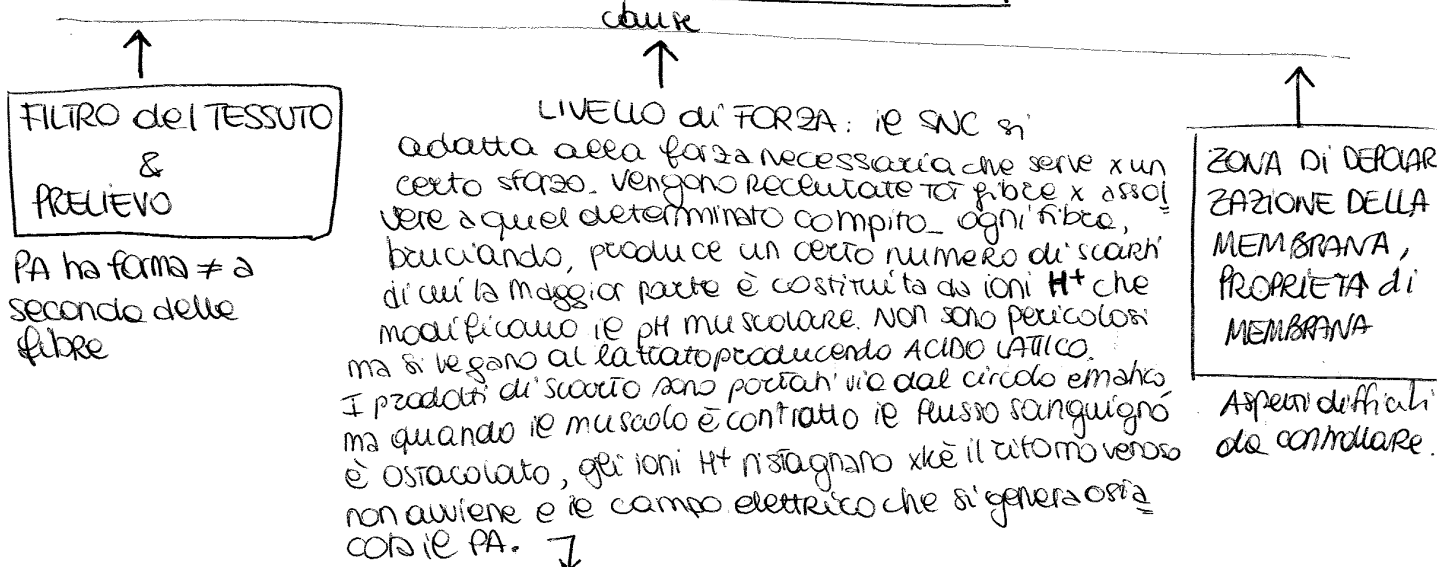 cause
FILTRO del TESSUTO
&
PRELIEVO
PA ha forma ≠ a
seconda delle
fibre
LIVELLO di FORZA: il SNC si
adatta alla forza necessaria che serve x un
certo sforzo. Vengono reclutate tot fibre x assol
vere a quel determinato compito. ogni fibra,
bruciando, produce un certo numero di scarti
di cui la maggior parte è costituita da ioni H+ che
modificano il pH muscolare. Non sono pericolosi
ma si legano al lattato producendo ACIDO LATTICO.
I prodotti di scarto sono portati via dal circolo ematico
ma quando il muscolo è contratto il flusso sanguigno
è ostacolato, gli ioni H+ ristagnano xkè il ritorno venoso
non avviene e il campo elettrico che si genera osta
cola il PA.
ZONA DI DEPOLAR
ZAZIONE DELLA
MEMBRANA,
PROPRIETÀ di
MEMBRANA
Aspetti difficili
da controllare.